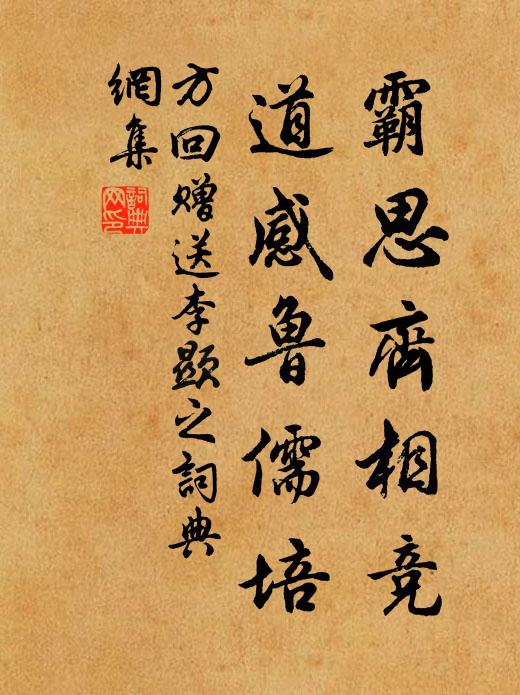 霸思齊相竞
道感魯儒培
方回赠送李顯之詞典
網集
詞典网印